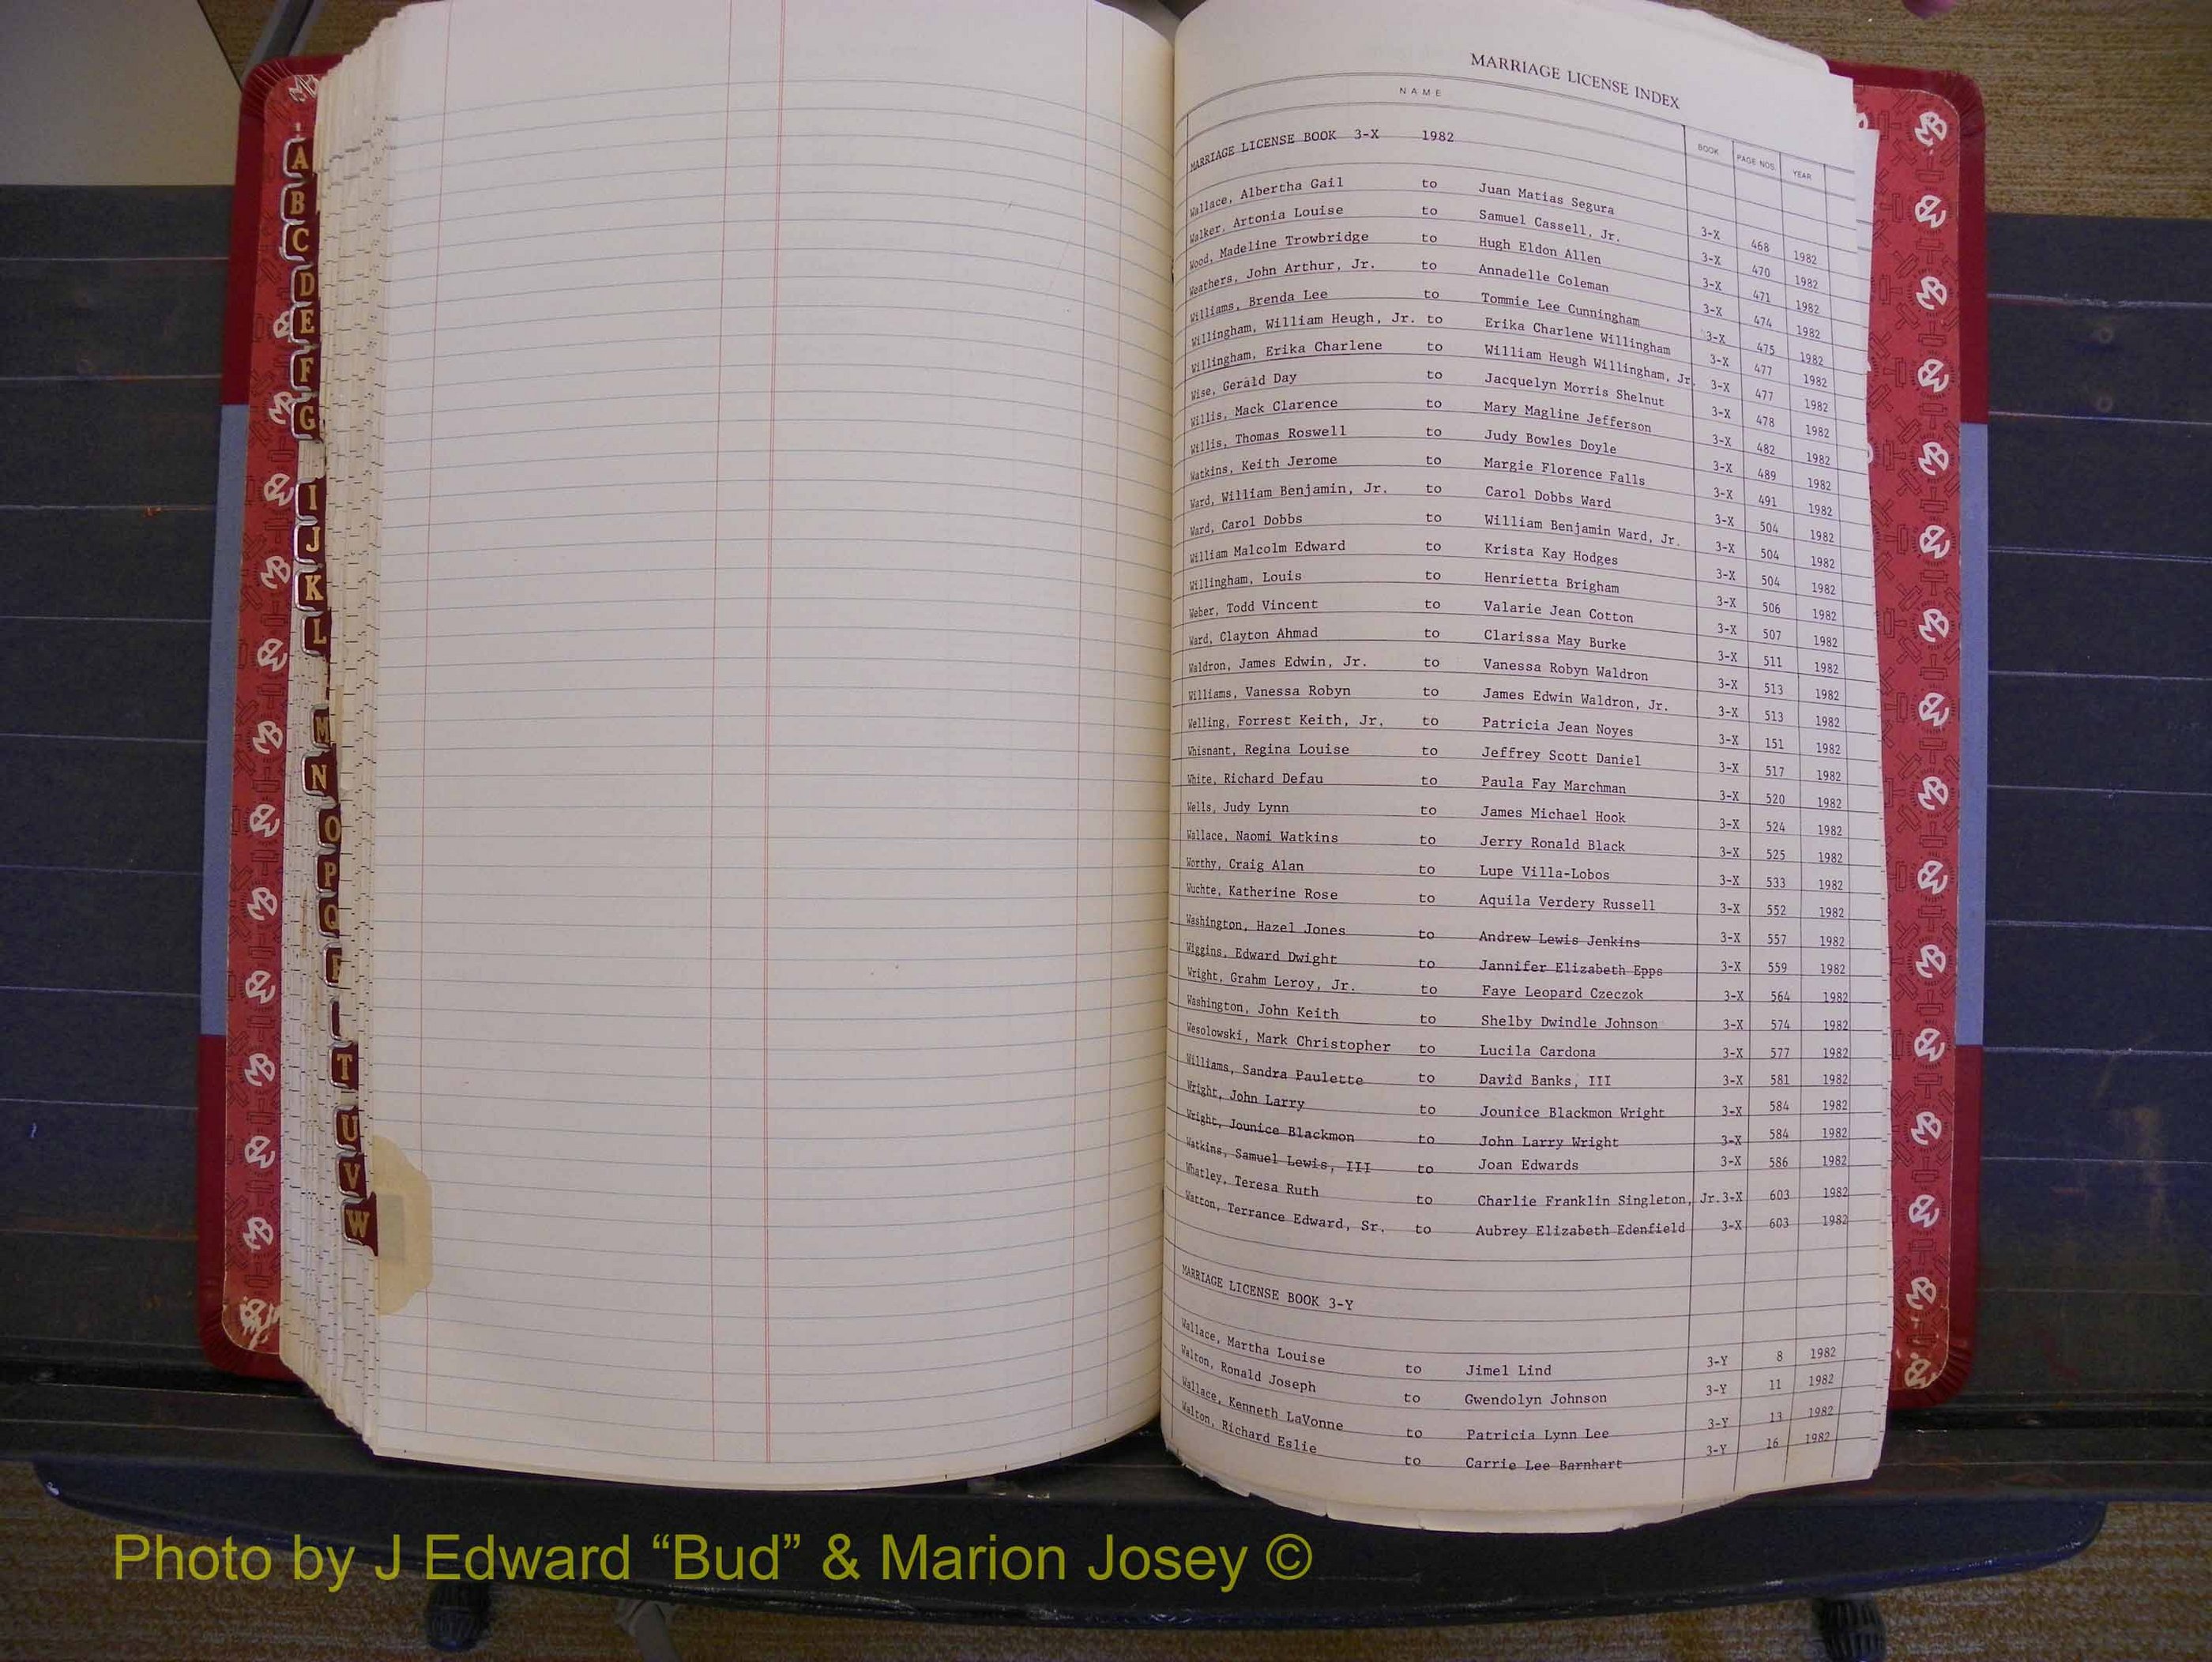 MARRIAGE LICENSE INDEX
NAME BOOK PAGE NOS. YEAR
MARRIAGE LICENSE BOOK 3-X 1982
Wallace, Albertha Gail to Juan Matias Segura 3-X 468 1982
Walker, Artonia Louise to Samuel Cassell, Jr. 3-X 470 1982
Wood, Madeline Trowbridge to Hugh Eldon Allen 3-X 471 1982
Weathers, John Arthur, Jr. to Annadelle Coleman 3-X 474 1982
Williams, Brenda Lee to Tommie Lee Cunningham 3-X 475 1982
Willingham, William Heugh, Jr. to Erika Charlene Willingham 3-X 477 1982
Willingham, Erika Charlene to William Heugh Willingham, Jr. 3-X 477 1982
Wise, Gerald Day to Jacquelyn Morris Shelnut 3-X 478 1982
Willis, Mack Clarence to Mary Magline Jefferson 3-X 482 1982
Willis, Thomas Roswell to Judy Bowles Doyle 3-X 489 1982
Watkins, Keith Jerome to Margie Florence Falls 3-X 491 1982
Ward, William Benjamin, Jr. to Carol Dobbs Ward 3-X 504 1982
Ward, Carol Dobbs to William Benjamin Ward, Jr. 3-X 504 1982
William Malcolm Edward to Krista Kay Hodges 3-X 504 1982
Willingham, Louis to Henrietta Brigham 3-X 506 1982
Weber, Todd Vincent to Valarie Jean Cotton 3-X 507 1982
Ward, Clayton Ahmad to Clarissa May Burke 3-X 511 1982
Waldron, James Edwin, Jr. to Vanessa Robyn Waldron 3-X 513 1982
Williams, Vanessa Robyn to James Edwin Waldron, Jr. 3-X 513 1982
Welling, Forrest Keith, Jr. to Patricia Jean Noyes 3-X 151 1982
Whisnant, Regina Louise to Jeffrey Scott Daniel 3-X 517 1982
White, Richard Defau to Paula Fay Marchman 3-X 520 1982
Wells, Judy Lynn to James Michael Hook 3-X 524 1982
Wallace, Naomi Watkins to Jerry Ronald Black 3-X 525 1982
Worthy, Craig Alan to Lupe Villa-Lobos 3-X 533 1982
Wuchte, Katherine Rose to Aquila Verdery Russell 3-X 552 1982
Washington, Hazel Jones to Andrew Lewis Jenkins 3-X 557 1982
Wiggins, Edward Dwight to Jannifer Elizabeth Epps 3-X 559 1982
Wright, Grahm Leroy, Jr. to Faye Leopard Czeczok 3-X 564 1982
Washington, John Keith to Shelby Dwindle Johnson 3-X 574 1982
Wesolowski, Mark Christopher to Lucila Cardona 3-X 577 1982
Williams, Sandra Paulette to David Banks, III 3-X 581 1982
Wright, John Larry to Jounice Blackmon Wright 3-X 584 1982
Wright, Jounice Blackmon to John Larry Wright 3-X 584 1982
Watkins, Samuel Lewis, III to Joan Edwards 3-X 586 1982
Whatley, Teresa Ruth to Charlie Franklin Singleton, Jr. 3-X 603 1982
Watton, Terrance Edward, Sr. to Aubrey Elizabeth Edenfield 3-X 603 1982
MARRIAGE LICENSE BOOK 3-Y
Wallace, Martha Louise to Jimel Lind 3-Y 8 1982
Walton, Ronald Joseph to Gwendolyn Johnson 3-Y 11 1982
Wallace, Kenneth LaVonne to Patricia Lynn Lee 3-Y 13 1982
Walton, Richard Eslie to Carrie Lee Barnhart 3-Y 16 1982
A
B
C
D
E
F
G
I
J
K
L
M
N
O
P
Q
T
U
V
W
Photo by J Edward “Bud” & Marion Josey ©